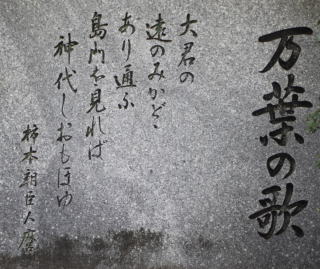 万葉の歌
大君の
遠のみかどと
あり通ふ
島門を見れば
神代しおもほゆ
柿本朝臣人麿